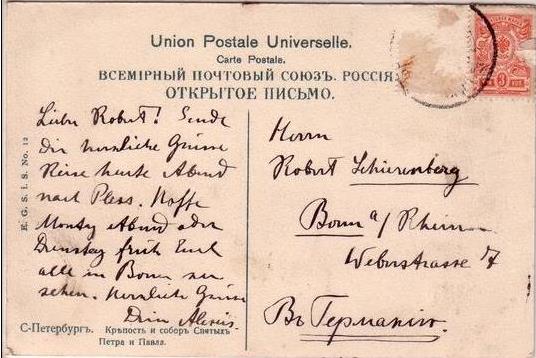 Union Postale Universelle.
Carte Postale.
ВСЕМІРНЫЙ ПОЧТОВЫЙ СОЮЗЪ. РОССІЯ.
ОТКРЫТОЕ ПИСЬМО.
3
Liebe Robert! Sende
dir herzliche Grüsse
Reise heute Abend
nach Pless. Hoffe
Montag Abend oder
Dienstag früh Euch
alle in Bonn zu
sehen. Herzliche Grüsse
Dein Alexis.
Herrn
Robert Schierenberg
Bonn a/ Rhein
Weberstrasse 7
Въ Германію.
E. G. S. I. S. No. 12
С-Петербургъ. Крѣпость и соборъ Святыхъ
Петра и Павла.